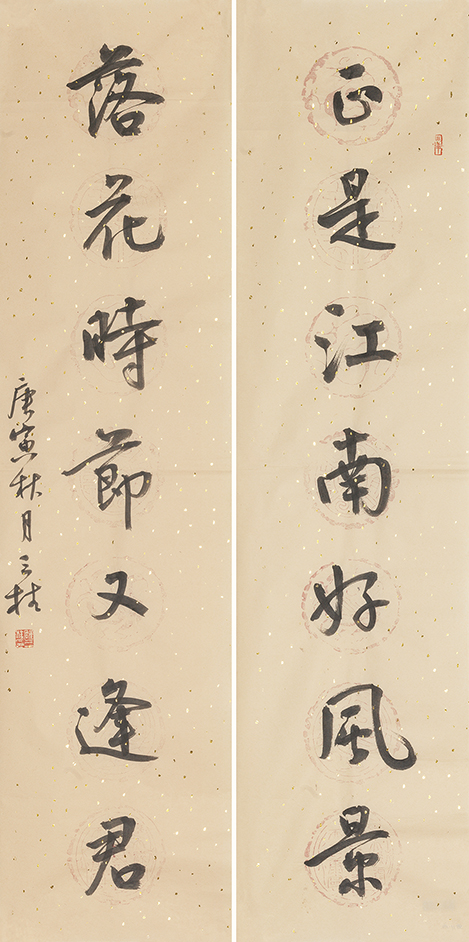 正是江南好風景
落花時節又逢君
庚寅秋月三楛